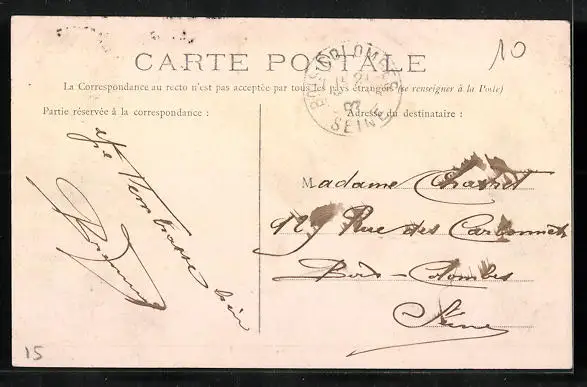 CARTE POSTALE
10
BOIS-COLOMBES
SEINE
La Correspondance au recto n'est pas acceptée par tous les pays étrangers (se renseigner à la Poste)
Partie réservée à la correspondance :
Adresse du destinataire :
je t'embrasse bien
Madame
Rue des Carbonnets
Bois-Colombes
Seine
15